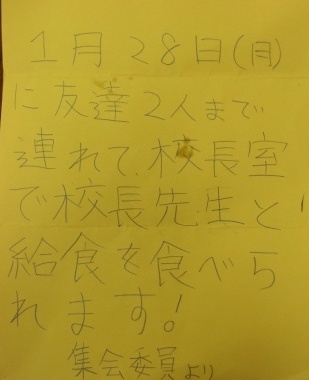 1月28日(月)
に友達2人まで
連れて、校長室
で校長先生と
給食を食べら
れます!
集会委員より